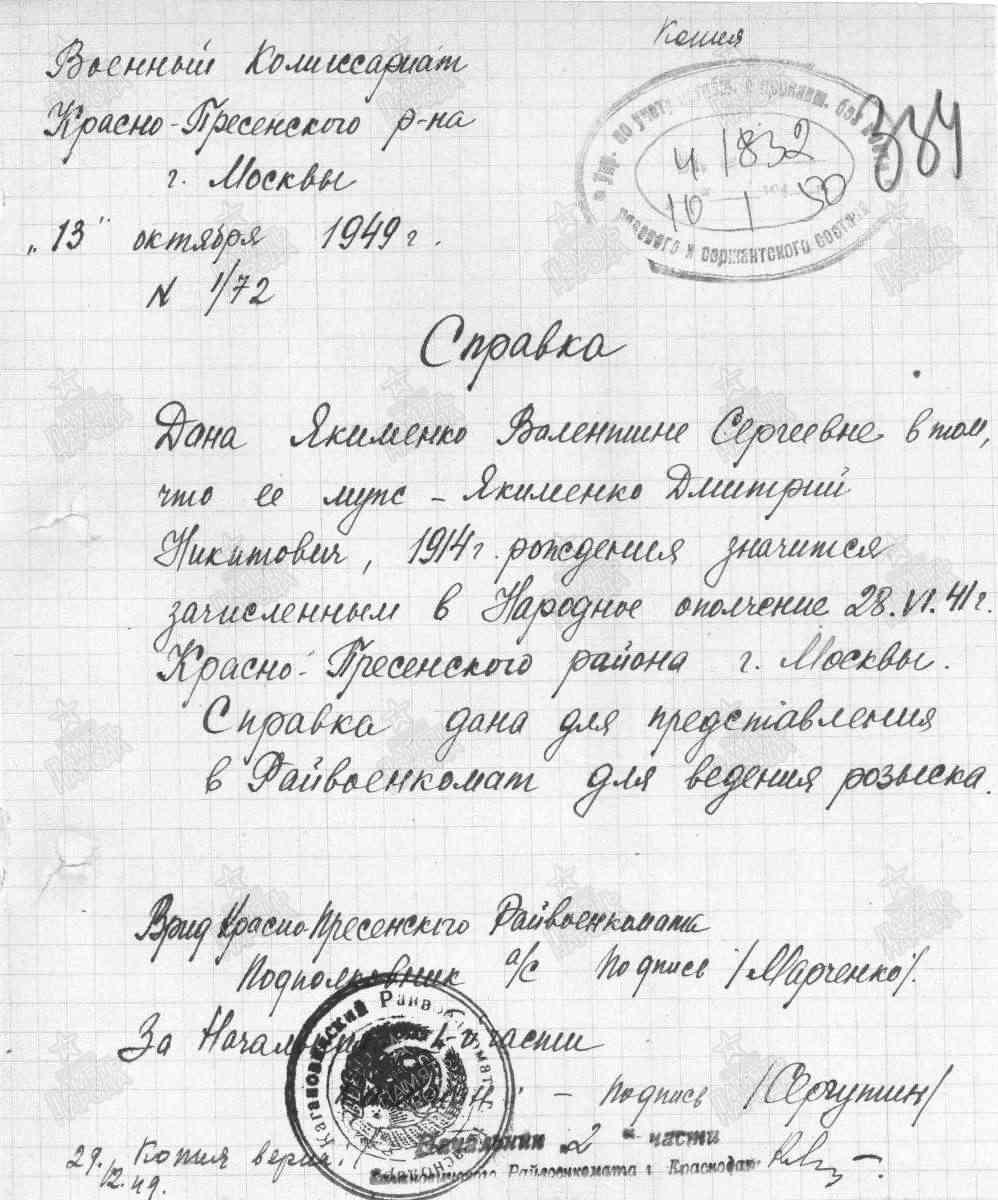 Копия
Военный Комиссариат
Красно-Пресенского р-на
г. Москвы
„13" октября 1949 г.
N 1/72
Упр. по учету погибш. и пропавш. без вести
рядового и сержантского состава
4 1832
10 1 50
334
Справка
Дана Якименко Валентине Сергеевне в том,
что ее муж - Якименко Дмитрий
Никитович, 1914 г. рождения значится
зачисленным в Народное ополчение 28.VI.41 г.
Красно-Пресенского района г. Москвы.
Справка дана для представления
в Райвоенкомат для ведения розыска.
Врид Красно-Пресенского Райвоенкомата
Подполковник а/с Подпись /Марченко/.
За Начальника части
- подпись /Сергутин/
Кагановичский Райвоенкомат
Начальник 2 части
Райвоенкомата г. Краснодар
29.12.49. Копия верна.